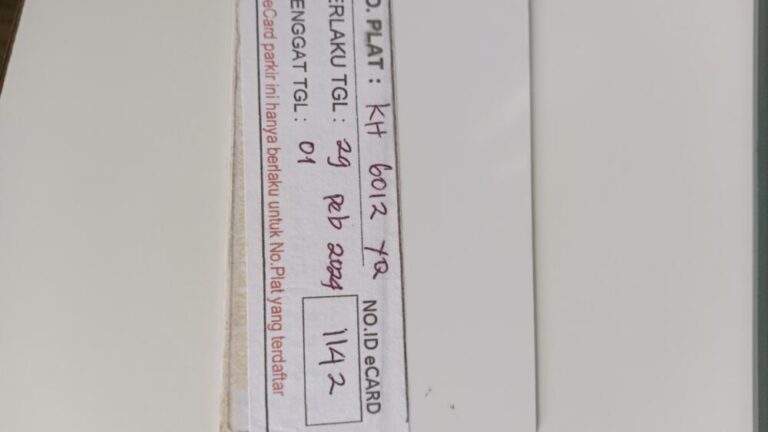 O. PLAT : KH 6012 YQ
ERLAKU TGL : 29 Peb 2024
ENGGAT TGL : 01
NO.ID eCARD
1142
eCard parkir ini hanya berlaku untuk No.Plat yang terdaftar